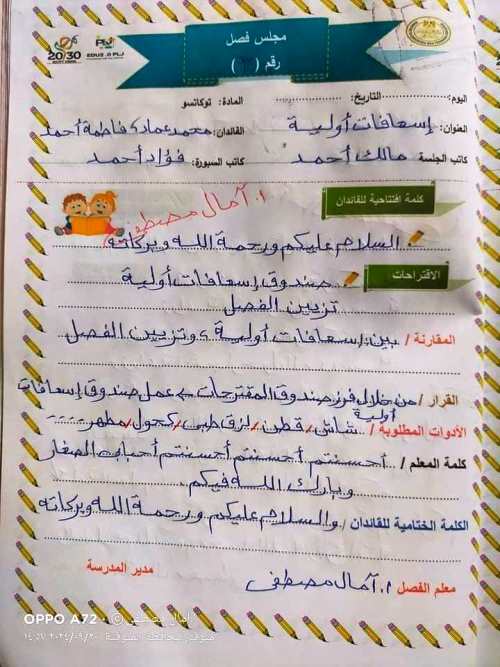 مجلس فصل
رقم ( )
20/30
EDU2.0 PLJ
اليوم: التاريخ: المادة: توكاتسو
العنوان: إسعافات أولية القائدان: محمد عماد، فاطمة أحمد
كاتب الجلسة مالك أحمد كاتب السبورة: فؤاد أحمد
أ. آمال مصطفى
كلمة افتتاحية للقائدان
السلام عليكم ورحمة الله وبركاته
الاقتراحات
صندوق إسعافات أولية
تزيين الفصل
المقارنة / بين: إسعافات أولية، وتزيين الفصل
القرار / من خلال فرز صندوق المقترحات ← عمل صندوق إسعافات
أولية
الأدوات المطلوبة / شاش / قطن / لزق طبى / كحول / مطهر
كلمة المعلم / أحسنتم أحسنتم أحسنتم أحبابى الصغار
وبارك الله فيكم
الكلمة الختامية للقائدان / والسلام عليكم ورحمة الله وبركاته
مدير المدرسة
معلم الفصل أ. آمال مصطفى
OPPO A72 © آمال مصطفى